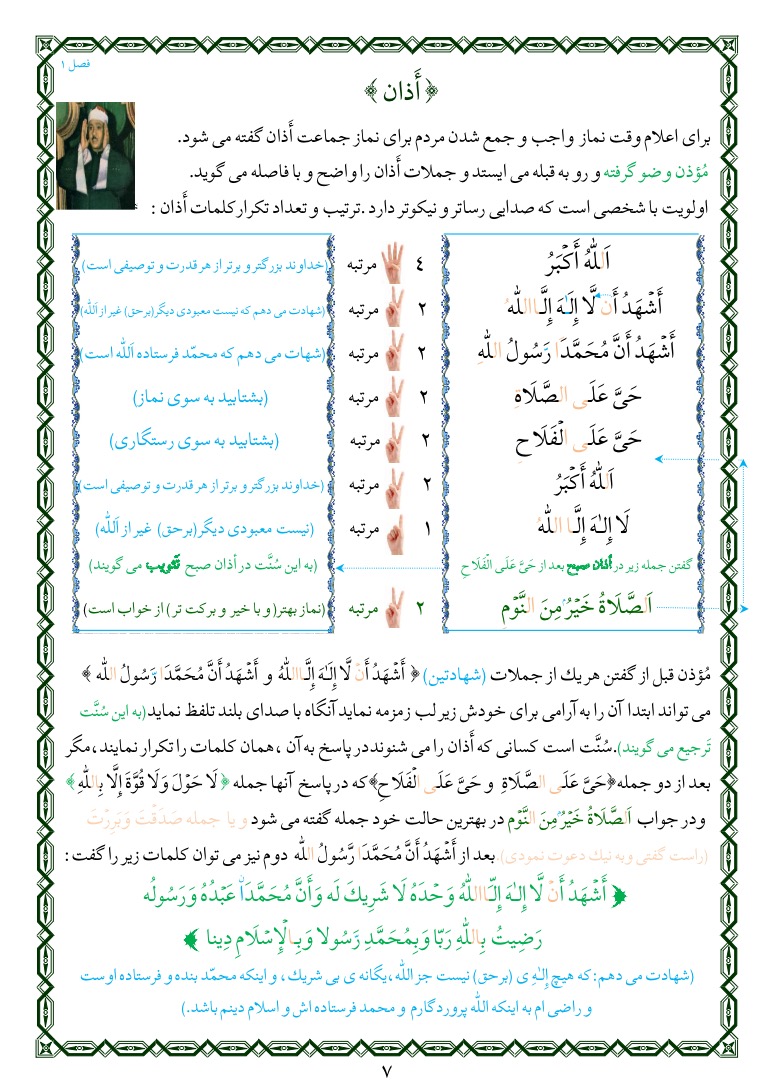 فصل ۱
﴿ أَذان ﴾
برای اعلام وقت نماز واجب و جمع شدن مردم برای نماز جماعت أَذان گفته می شود.
مُؤذن وضو گرفته و رو به قبله می ایستد و جملات أَذان را واضح و با فاصله می گوید.
اولویت با شخصی است که صدایی رساتر و نیکوتر دارد .ترتیب و تعداد تکرار کلمات أَذان :
اَللهُ أَکۡبَرُ ۴ مرتبه (خداوند بزرگتر و برتر از هر قدرت و توصیفی است)
أَشۡهَدُ أَن لَّا إِلَـٰهَ إِلَّا اللهُ ۲ مرتبه (شهادت می دهم که نیست معبودی دیگر(برحق) غیر از اَللّٰه)
أَشۡهَدُ أَنَّ مُحَمَّدَا رَّسُولُ اللهِ ۲ مرتبه (شهات می دهم که محمّد فرستاده اَللّٰه است)
حَیَّ عَلَی الصَّلَاةِ ۲ مرتبه (بشتابید به سوی نماز)
حَیَّ عَلَی الۡفَلَاحِ ۲ مرتبه (بشتابید به سوی رستگاری)
اَللهُ أَکۡبَرُ ۲ مرتبه (خداوند بزرگتر و برتر از هر قدرت و توصیفی است)
لَا إِلَـٰهَ إِلَّا اللهُ ۱ مرتبه (نیست معبودی دیگر(برحق) غیر از اَللّٰه)
گفتن جمله زیر در أَذان صبح بعد از حَیَّ عَلَی الۡفَلَاحِ (به این سُنَّت در أذان صبح تَثویب می گویند)
اَلصَّلَاةُ خَیۡرُ مِنَ النَّوۡم ۲ مرتبه (نماز بهتر(و با خیر و برکت تر) از خواب است)
مُؤذن قبل از گفتن هر یك از جملات (شهادتین) ﴿ أَشۡهَدُ أَنۡ لَّا إِلَـٰهَ إِلَّا اللهُ و أَشۡهَدُ أَنَّ مُحَمَّدَا رَّسُولُ الله ﴾
می تواند ابتدا آن را به آرامی برای خودش زیر لب زمزمه نماید آنگاه با صدای بلند تلفظ نماید(به این سُنَّت
تَرجیع می گویند).سُنَّت است کسانی که أَذان را می شنوند در پاسخ به آن ، همان کلمات را تکرار نمایند ، مگر
بعد از دو جمله ﴿حَیَّ عَلَی الصَّلَاةِ و حَیَّ عَلَی الۡفَلَاحِ﴾ که در پاسخ آنها جمله ﴿ لَا حَوۡلَ وَلَا قُوَّةَ إِلَّا بِاللهِ ﴾
ودر جواب اَلصَّلَاةُ خَیۡرُ مِنَ النَّوۡم در بهترین حالت خود جمله گفته می شود و یا جمله صَدَقۡتَ وَبَرِرۡتَ
(راست گفتی وبه نیك دعوت نمودی). بعد از أَشۡهَدُ أَنَّ مُحَمَّدَا رَّسُولُ الله دوم نیز می توان کلمات زیر را گفت :
﴿ أَشۡهَدُ أَنۡ لَّا إِلـٰهَ إِلَّا اللهُ وَحۡدَهُ لَا شَرِیكَ لَه وَأَنَّ مُحَمَّدَاً عَبۡدُهُ وَرَسُولُه
رَضِیتُ بِاللهِ رَبَّا وَبِمُحَمَّدِ رَسُولا وَبِالۡإِسۡلَامِ دِینا ﴾
(شهادت می دهم : که هیچ إلـٰه ی (برحق) نیست جز الله ، یگانه ی بی شریك ، و اینکه محمّد بنده و فرستاده اوست
و راضی ام به اینکه الله پروردگارم و محمد فرستاده اش و اسلام دینم باشد.)
۷